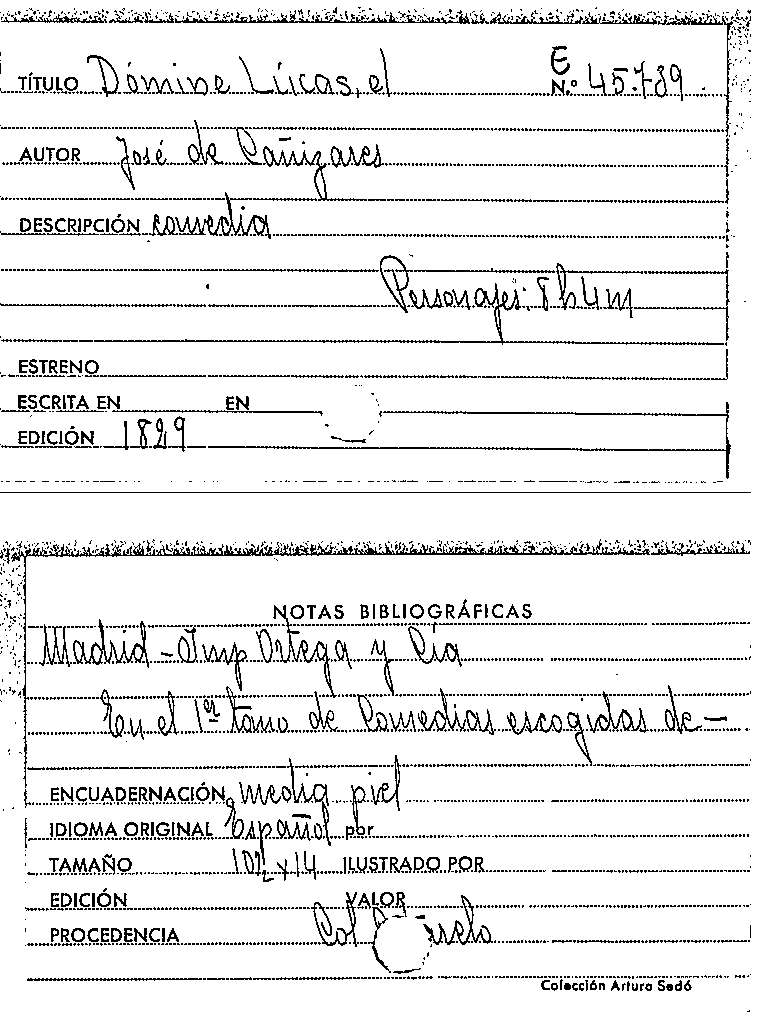 E
TÍTULO Dómine Lúcas, el N.º 45.789.
AUTOR José de Cañizares
DESCRIPCIÓN comedia
Personajes: 8 h 4 m
ESTRENO
ESCRITA EN EN
EDICIÓN 1829
NOTAS BIBLIOGRÁFICAS
Madrid - Imp Ortega y Cía
En el 1er tomo de Comedias escogidas de —
ENCUADERNACIÓN media piel
IDIOMA ORIGINAL Español por
TAMAÑO 10½ x 14 ILUSTRADO POR
EDICIÓN VALOR
PROCEDENCIA Col
Colección Arturo Sedó